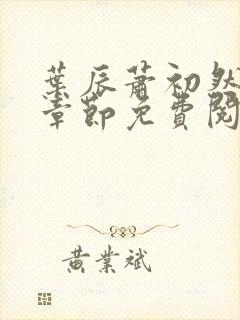 葉辰蕭初然
章節免費閱
黃業斌